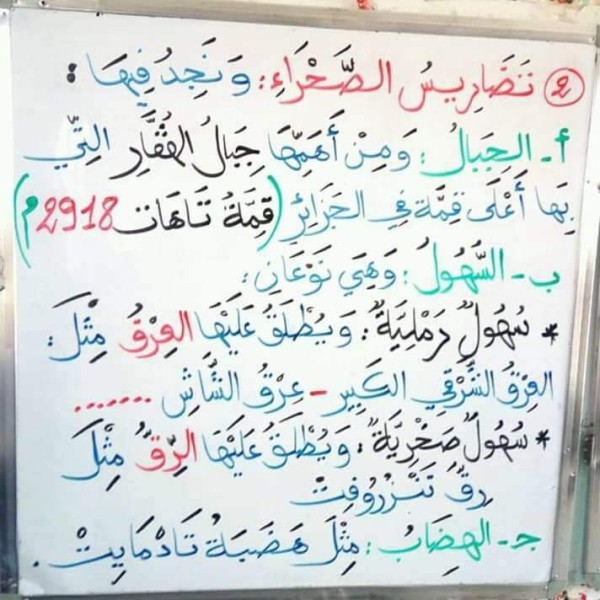 2 تَضَارِيسُ الصَّحْرَاءِ: وَنَجِدُ فِيهَا:
أ- الجِبَالُ: وَمِنْ أَهَمِّهَا جِبَالُ الهُقَّارِ التِّي
بِهَا أَعْلَى قِمَّة فِي الجَزَائِرِ (قِمَّةُ تَاهَات 2918م)
ب- السُّهُولُ: وَهِيَ نَوْعَانِ:
* سُهُولٌ رَمْلِيَّةٌ: وَيُطْلَقُ عَلَيْهَا العِرْقُ مِثْلَ:
العِرْقُ الشَّرْقِي الكَبِير - عِرْقُ الشَّاشِ .......
* سُهُولٌ صَخْرِيَّةٌ: وَيُطْلَقُ عَلَيْهَا الرِّقُّ مِثْلَ
رِقّ تَنَزْرُوفِتْ
جـ- الهِضَابُ: مِثْلَ هَضَبَةُ تَادْمَايِتْ.